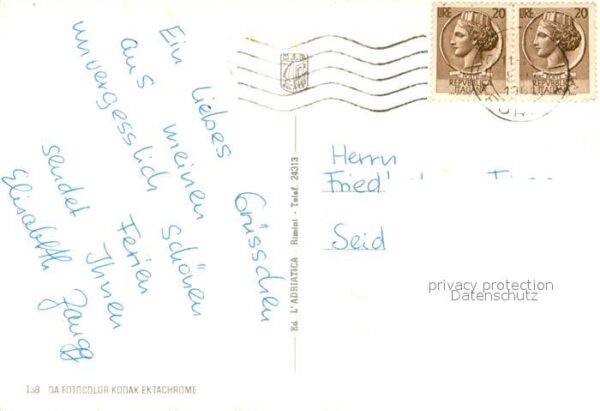 Ein liebes Grüsschen
aus meinen schönen
unvergesslich Ferien
sendet Ihnen
Elisabeth Zaugg
LIRE 20
LIRE 20
REPVBBLICA
ITALIANA
REPVBBLICA
ITALIANA
Ed. L'ADRIATICA - Rimini - Telef. 24313
Herrn
Fried
Seid
privacy protection
Datenschutz
DA FOTOCOLOR KODAK EKTACHROME